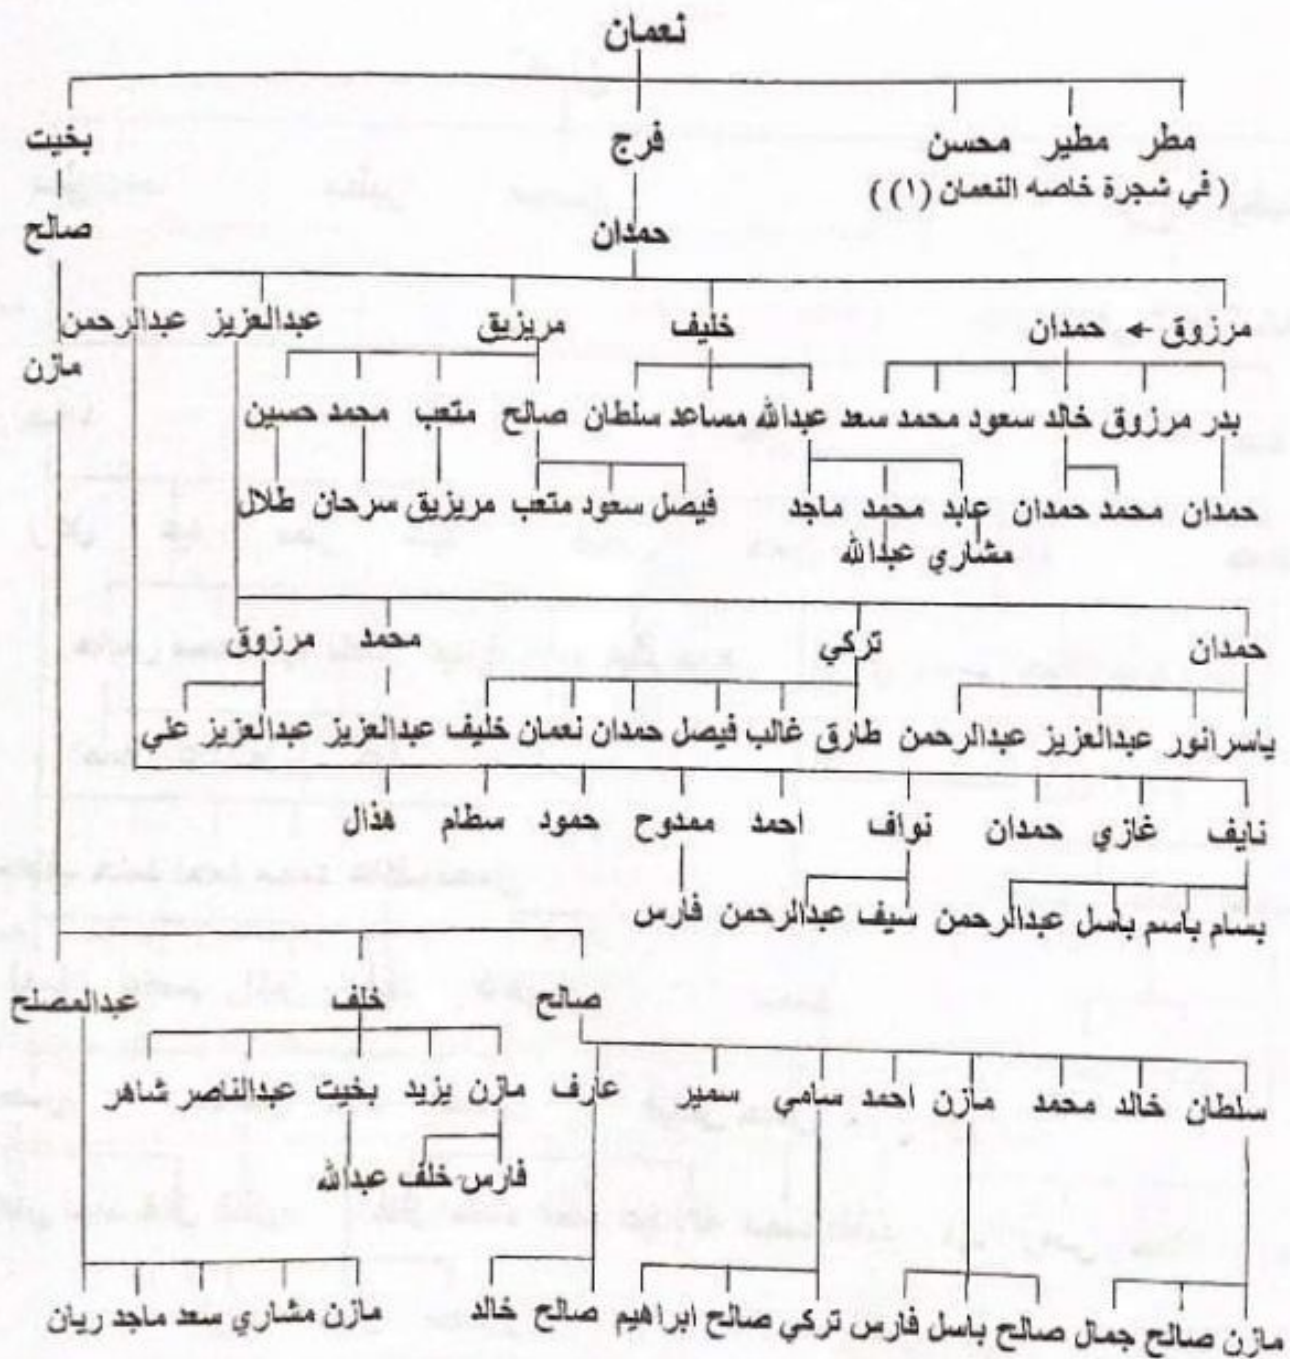 نعمان
مطر مطير محسن فرج بخيت
( في شجرة خاصه النعمان (١) )
حمدان صالح
مرزوق ← حمدان خليف مريزيق عبدالعزيز عبدالرحمن
مازن
بدر مرزوق خالد سعود محمد سعد عبدالله مساعد سلطان صالح متعب محمد حسين
حمدان محمد حمدان عابد محمد ماجد فيصل سعود متعب مريزيق سرحان طلال
مشاري عبدالله
حمدان تركي محمد مرزوق
ياسر انور عبدالعزيز عبدالرحمن طارق غالب فيصل حمدان نعمان خليف عبدالعزيز عبدالعزيز علي
نايف غازي حمدان نواف احمد ممدوح حمود سطام هذال
بسام باسم باسل عبدالرحمن سيف عبدالرحمن فارس
صالح خلف عبدالمصلح
سلطان خالد محمد مازن احمد سامي سمير عارف مازن يزيد بخيت عبدالناصر شاهر
فارس خلف عبدالله
مازن صالح جمال صالح باسل فارس تركي صالح ابراهيم صالح خالد مازن مشاري سعد ماجد ريان